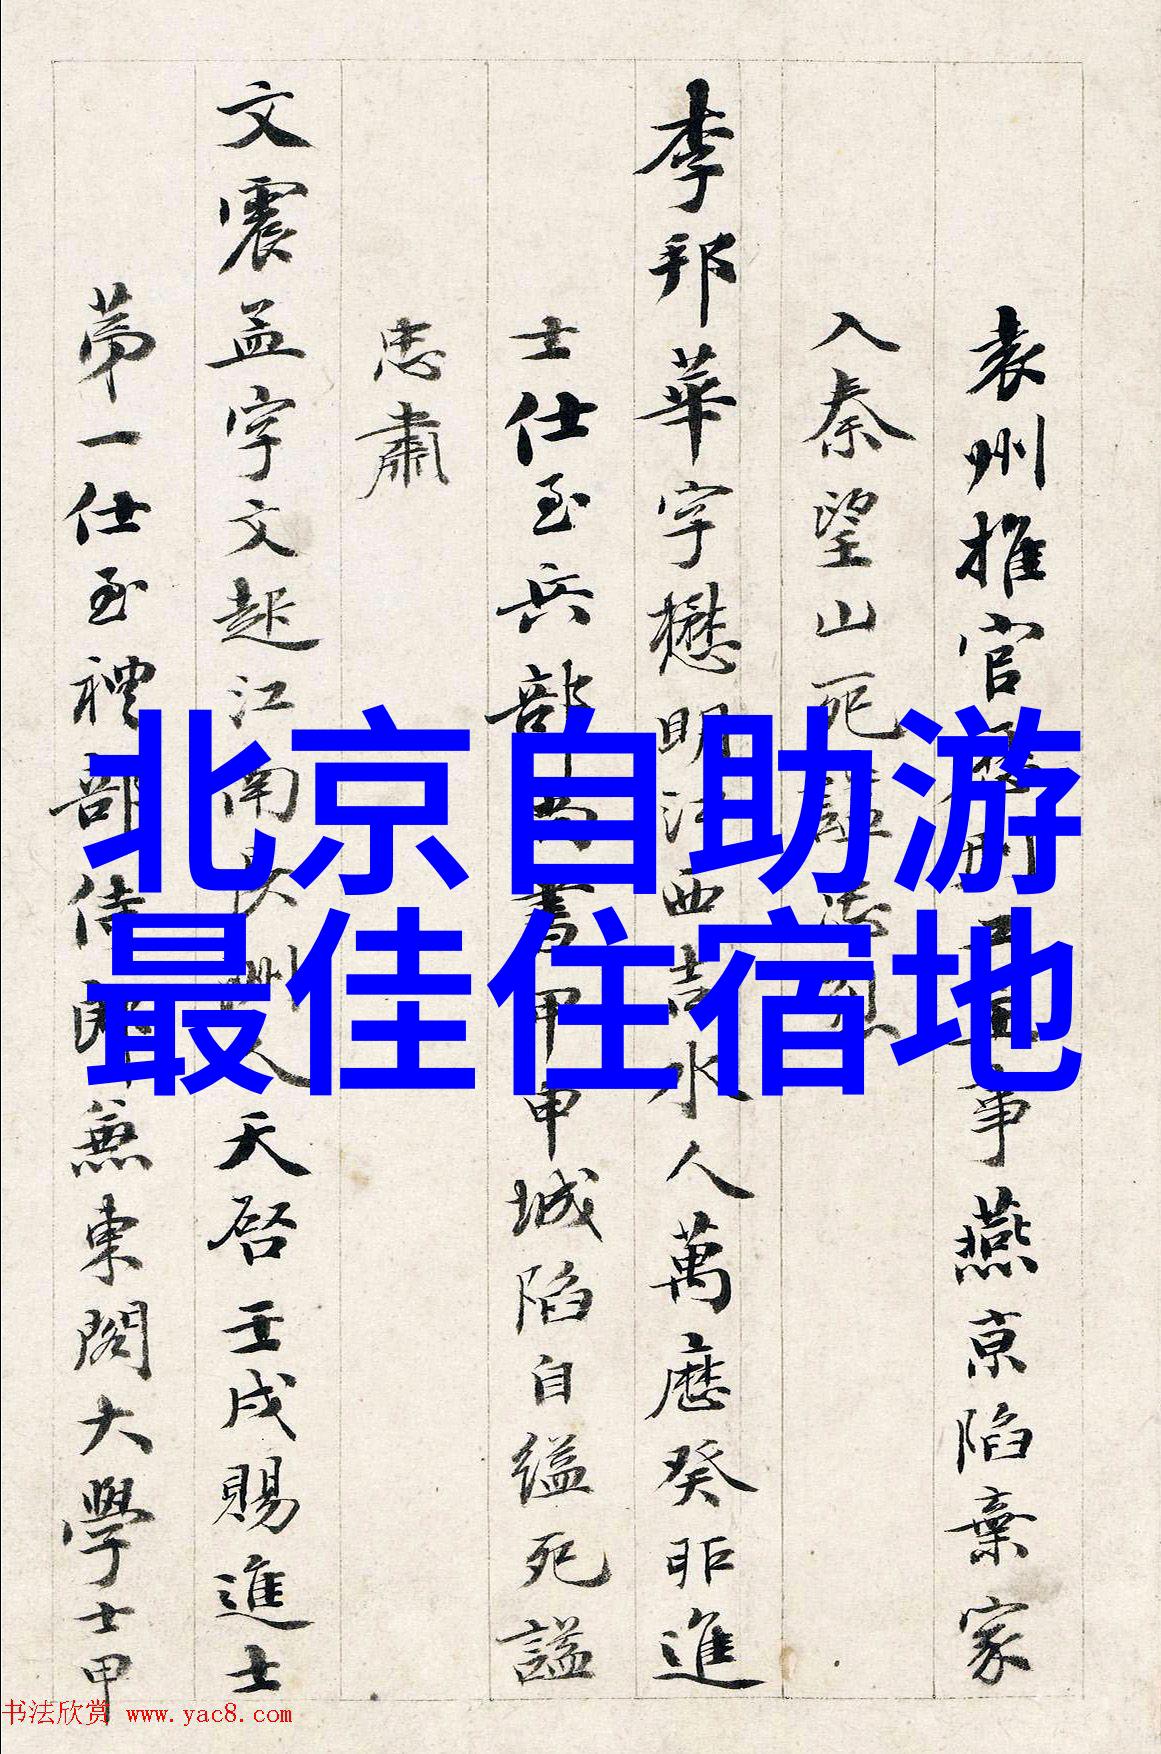 北京自助游
最佳住宿地
袁州推官刑事燕京陷棄家
入秦望山死謚
李邦華字懋明江西吉水人萬曆癸卯進
士仕至兵部尚書甲申城陷自縊死謚
忠肅
文震孟字文起江南長洲人天啓壬戌賜進士
第一仕至禮部侍郎兼東閣大學士甲
书法欣赏 www.yac8.com